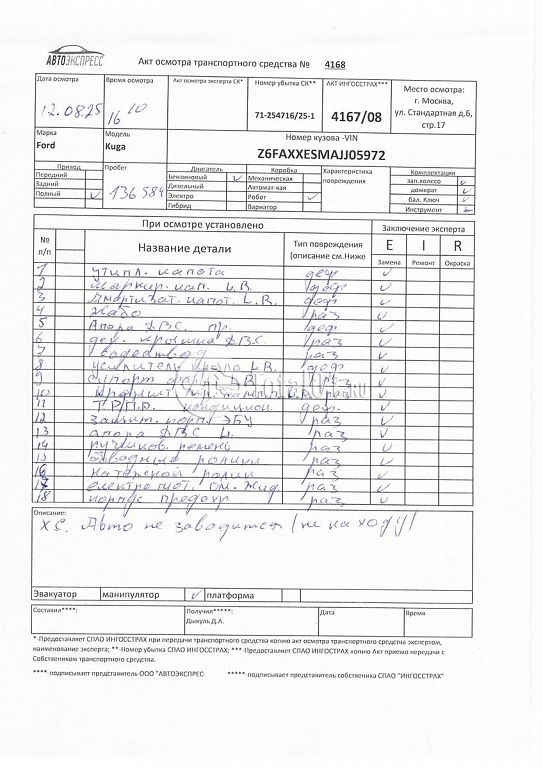 АВТОЭКСПРЕСС
Акт осмотра транспортного средства № 4168
Дата осмотра Время осмотра Акт осмотра эксперта СК* Номер убытка СК** АКТ ИНГОССТРАХ*** Место осмотра:
12.08.25 16 10 71-254716/25-1 4167/08 г. Москва,
ул. Стандартная д.6,
стр.17
Марка Модель Номер кузова -VIN
Ford Kuga Z6FAXXESMAJJ05972
Привод Пробег Двигатель Коробка Характеристика повреждения Комплектация
Передний 136 984 Бензиновый ✓ Механическая зап.колесо ✓
Задний Дизельный Автомат-кая домкрат ✓
Полный ✓ Электро Робот ✓ бал. Ключ ✓
Гибрид Вариатор Инструмент ✓
При осмотре установлено Заключение эксперта
№ п/п Название детали Тип повреждения (описание см.Ниже E I R
Замена Ремонт Окраска
1 утипл. капота деф ✓
2 шарнир. кап. L.R. деф ✓
3 Амортизат. капот. L.R. деф ✓
4 Жабо раз ✓
5 Апора ДВС. пр. деф ✓
6 дек. крышка ДВС. раз ✓
7 водоотвод раз ✓
8 усилитель крыла L.R деф ✓
9 супорт фары L.R раз ✓
10 раз ✓
11 Т.Р.П.Р. кондицион. деф. ✓
12 Защит. корп. ЭБУ раз ✓
13 апора ДВС L. раз ✓
14 ручейков. ремень раз ✓
15 обводные ролики раз ✓
16 натежной ролик раз ✓
17 електро ом. жид. раз ✓
18 корпус предохр раз ✓
Описание:
Х.С. Авто не заводится /не на ходу/
Эвакуатор манипулятор ✓ платформа
Составил****: Получил*****: Дата Время
Дыкуль Д.А.
*-Предоставляет СПАО ИНГОССТРАХ при передачи транспортного средства копию акт осмотра транспортного средства экспертом,
наименование эксперта; **-Номер убытка СПАО ИНГОССТРАХ; ***-Предоставляет СПАО ИНГОСТРАХ копию Акт приемо передачи с
Собствеником транспортного средства.
****-подписывает представитель ООО "АВТОЭКСПРЕС *****-подписывает представитель собственика СПАО "ИНГОССТРАХ"